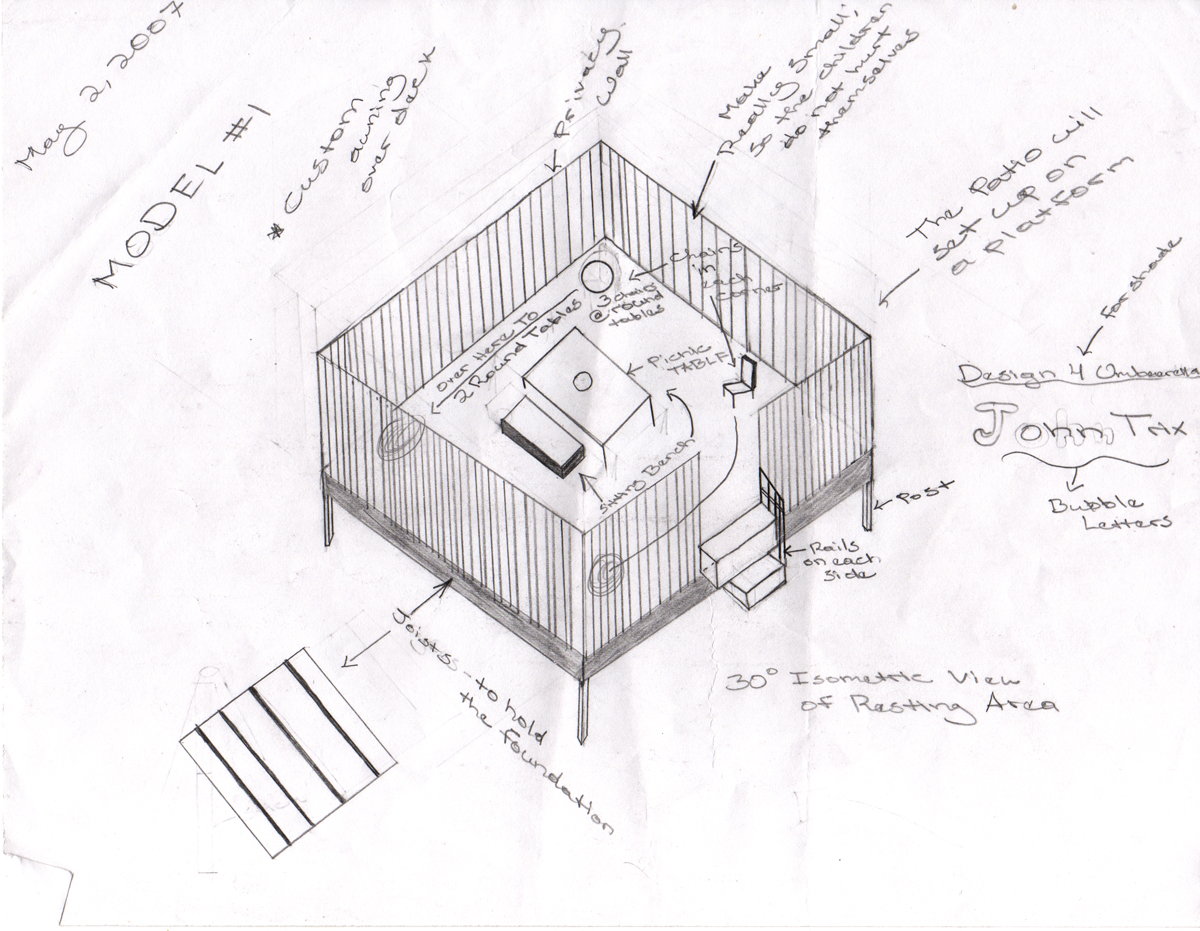 May 2, 2007
MODEL #1
* Custom
awning
over deck
Privacy
Wall
Make
Really small;
so the children
do not hurt
themselves
The Patio will
set up on
a platform
For shade
Design 4 Umbrella
John Trix
Bubble
Letters
Chairs
in
each
corner
3 chairs
@ round
tables
over Here To
2 Round Tables
Picnic
TABLE
sitting Bench
Post
Rails
on each
side
Joists -- to hold
the foundation
30° Isometric View
of Resting Area